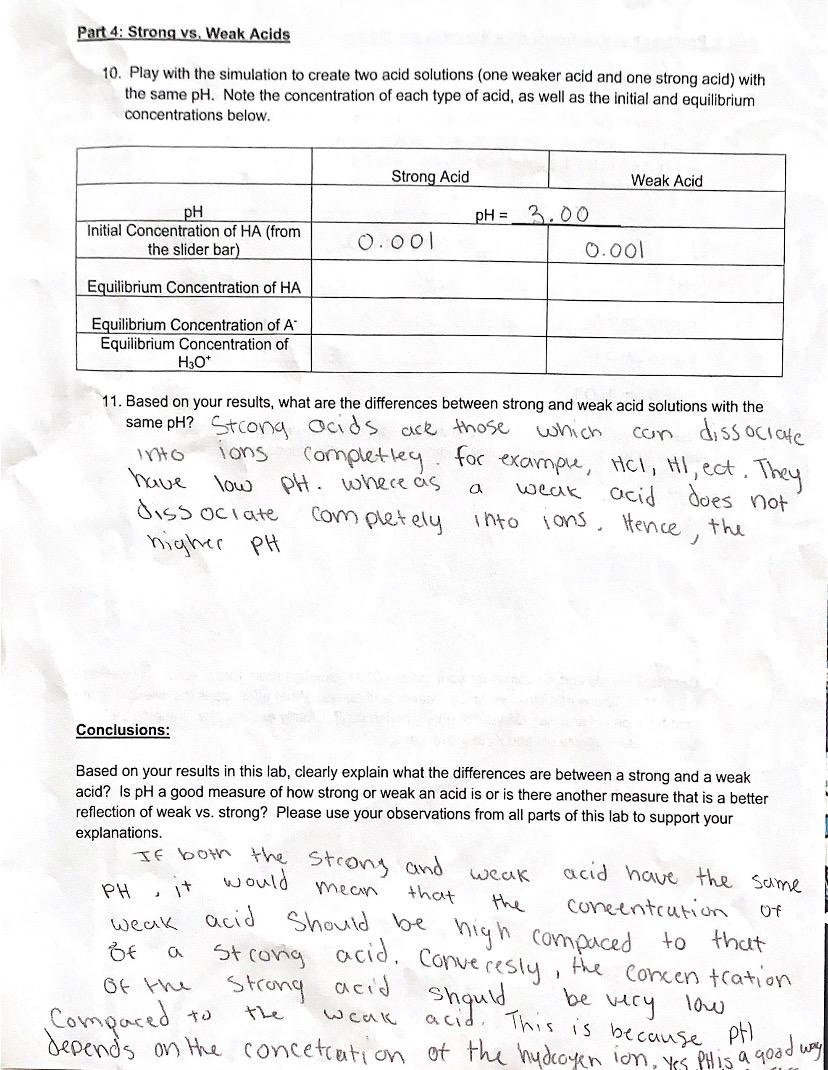 Part 4: Strong vs. Weak Acids
10. Play with the simulation to create two acid solutions (one weaker acid and one strong acid) with
the same pH. Note the concentration of each type of acid, as well as the initial and equilibrium
concentrations below.
Strong Acid Weak Acid
pH pH = 3.00
Initial Concentration of HA (from
the slider bar) 0.001 0.001
Equilibrium Concentration of HA
Equilibrium Concentration of A-
Equilibrium Concentration of
H₃O⁺
11. Based on your results, what are the differences between strong and weak acid solutions with the
same pH? Strong acids are those which can dissociate
into ions completley. for example, HCl, HI, ect. They
have low pH. where as a weak acid does not
dissociate completely into ions. Hence, the
higher pH
Conclusions:
Based on your results in this lab, clearly explain what the differences are between a strong and a weak
acid? Is pH a good measure of how strong or weak an acid is or is there another measure that is a better
reflection of weak vs. strong? Please use your observations from all parts of this lab to support your
explanations.
If both the strong and weak acid have the same
PH, it would mean that the concentration of
weak acid should be high compared to that
of a strong acid. Converesly, the concentration
of the strong acid should be very low
Compared to the weak acid. This is because pH
depends on the concetration of the hydrogen ion. yes PH is a good way